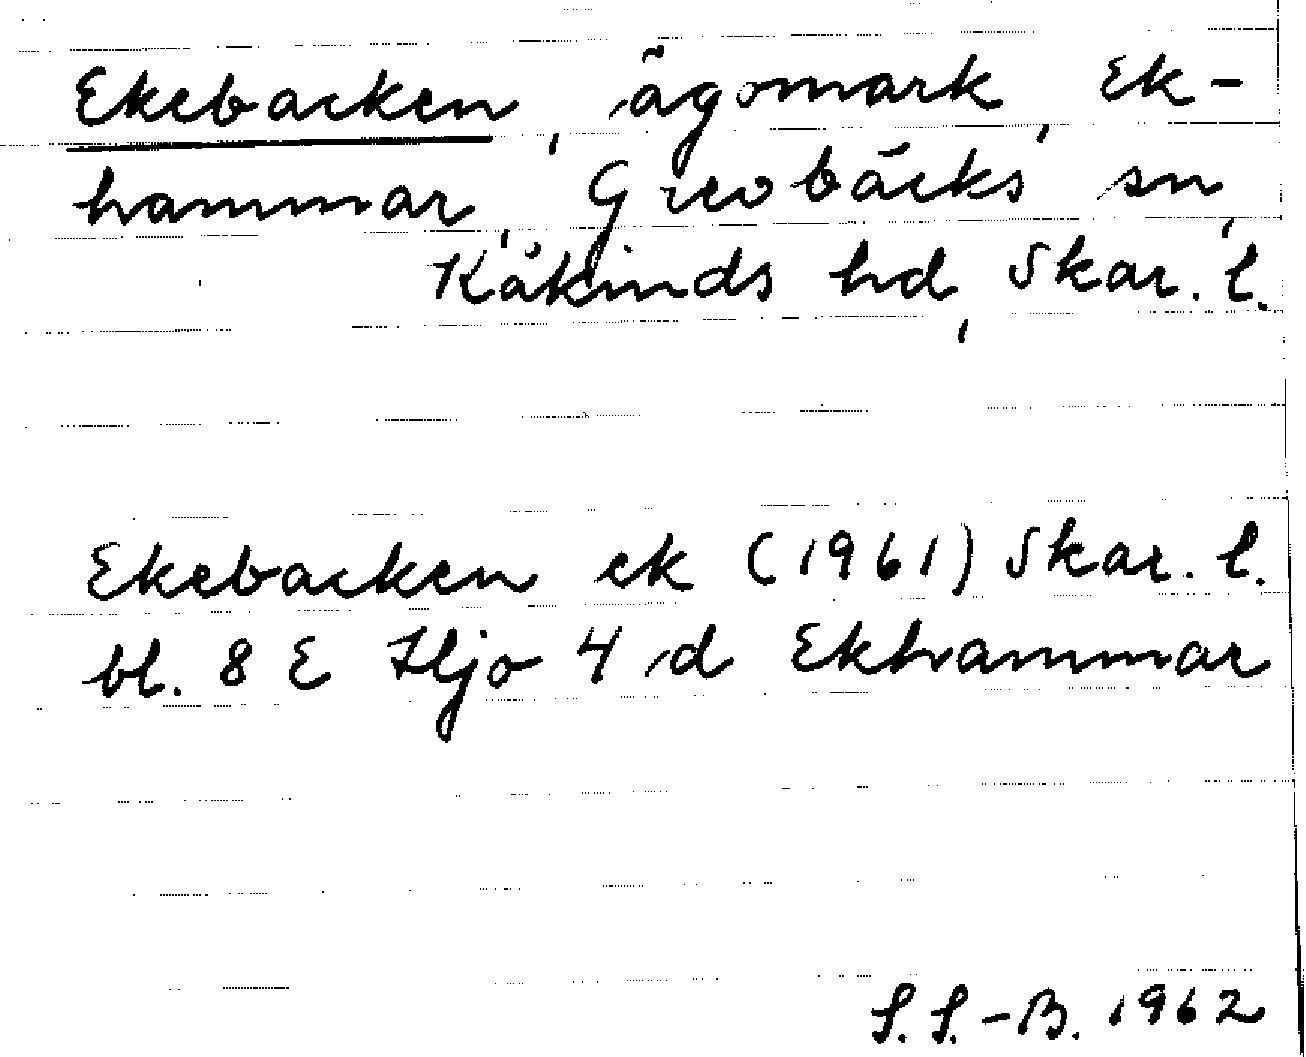 Ekebacken, ägomark, Ek-
hammar, Grevbäcks sn,
Kåkinds hd, Skar. l.
Ekebacken ek (1961) Skar. l.
bl. 8 E Hjo 4 d Ekhammar
S. S.-B. 1962